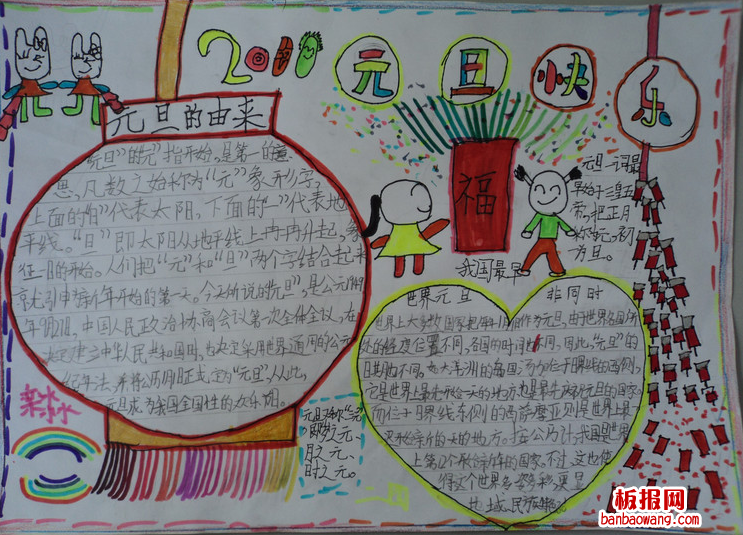 2011 元旦快乐
元旦的由来
"元旦"的"元"指开始,是第一的意
思,凡数之始称为"元"象形字,
上面的"日"代表太阳,下面的"一"代表地
平线。"旦"即太阳从地平线上冉冉升起,象
征一日的开始。人们把"元"和"旦"两个字结合起来
就引申新年开始的第一天。今天所说的"元旦",是公元
中国人民政治协商会议第一次全体会议,在
决定建立中华人民共和国同,也决定采用世界通用的公元
纪年法,并将公历正式定为"元旦",从此,
元旦成为我国全国性的欢乐
福
我国最早
元旦一词最
早始于三皇五
帝,把正月
称元,初
为旦。
元旦又称"三元"
即岁之元、
月之元、
时之元。
世界元旦 非同时
世界上大多数国家把每年1月1日作为元旦,由于世界各国所
处的经度位置不同,各国的时间也不同,因此,"元旦"的
日期也不同,如大洋洲的汤加国,位于日界线的西侧,
它是世界上最先开始一天的地方也是最先庆祝元旦的国家。
而位于日界线东侧的西萨摩亚则是世界上最
开始新的一天的地方。按公历计,我国是世界
上第12个开始新年的国家。不过,这也使
得这个世界多姿多彩,更具
地域、民族
板报网
banbaowang.com